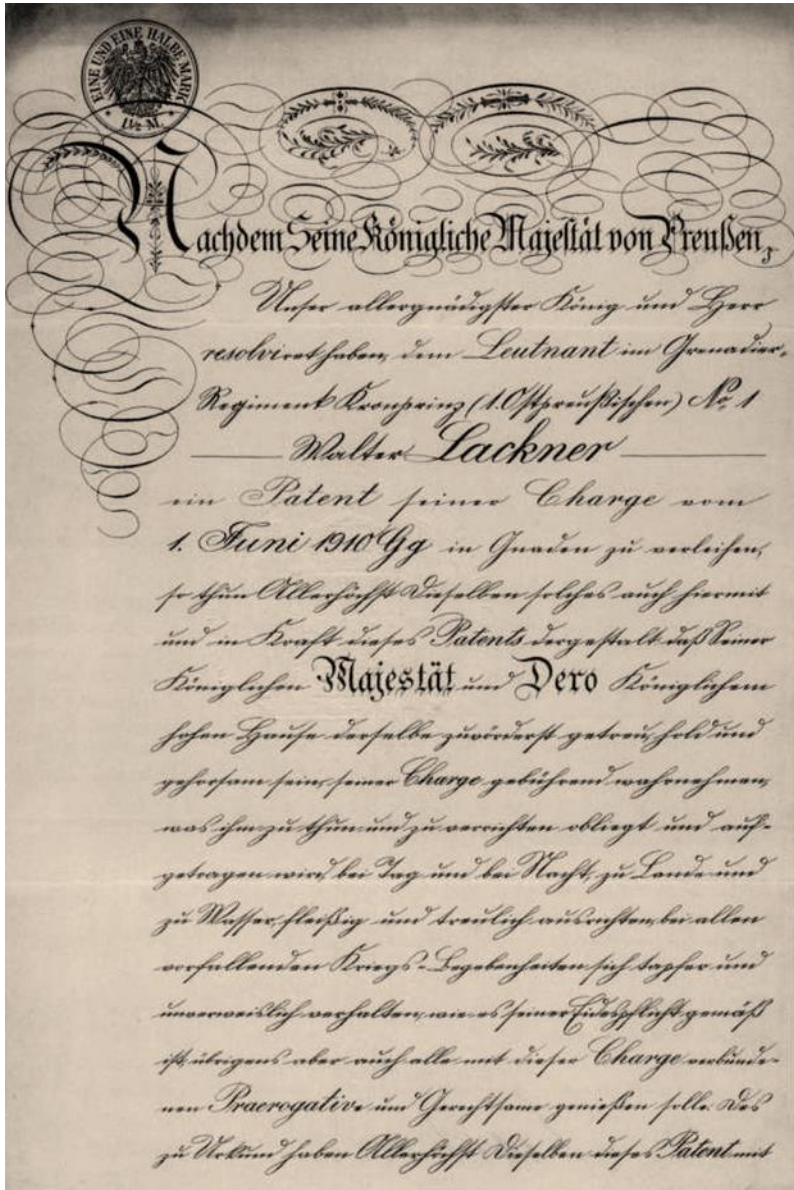 EINE UND EINE HALBE MARK
1½ M.
Nachdem Seine Königliche Majestät von Preußen,
Unser allergnädigster König und Herr
resolviret haben, dem Leutnant im Grenadier-
Regiment Kronprinz (1. Ostpreußischen) No. 1
Walter Lackner
ein Patent seiner Charge vom
1. Juni 1910 Gg in Gnaden zu verleihen,
so thun Allerhöchst Dieselben solches auch hiermit
und in Kraft dieses Patents dergestalt daß Seiner
Königlichen Majestät und Dero Königlichem
hohen Hause derselbe zuvörderst getreu, hold und
gehorsam sein, seiner Charge gebührend wahrnehmen,
was ihm zu thun und zu verrichten obliegt und auf-
getragen wird, bei Tag und bei Nacht, zu Lande und
zu Wasser, fleißig und treulich ausrichten, bei allen
vorfallenden Kriegs-Begebenheiten sich tapfer und
unverweislich verhalten, wie es seiner Eidespflicht gemäß
ist, übrigens aber auch alle mit dieser Charge verbunde-
nen Praerogative und Gerechtsame genießen solle. Des
zu Urkund haben Allerhöchst Dieselben dieses Patent mit